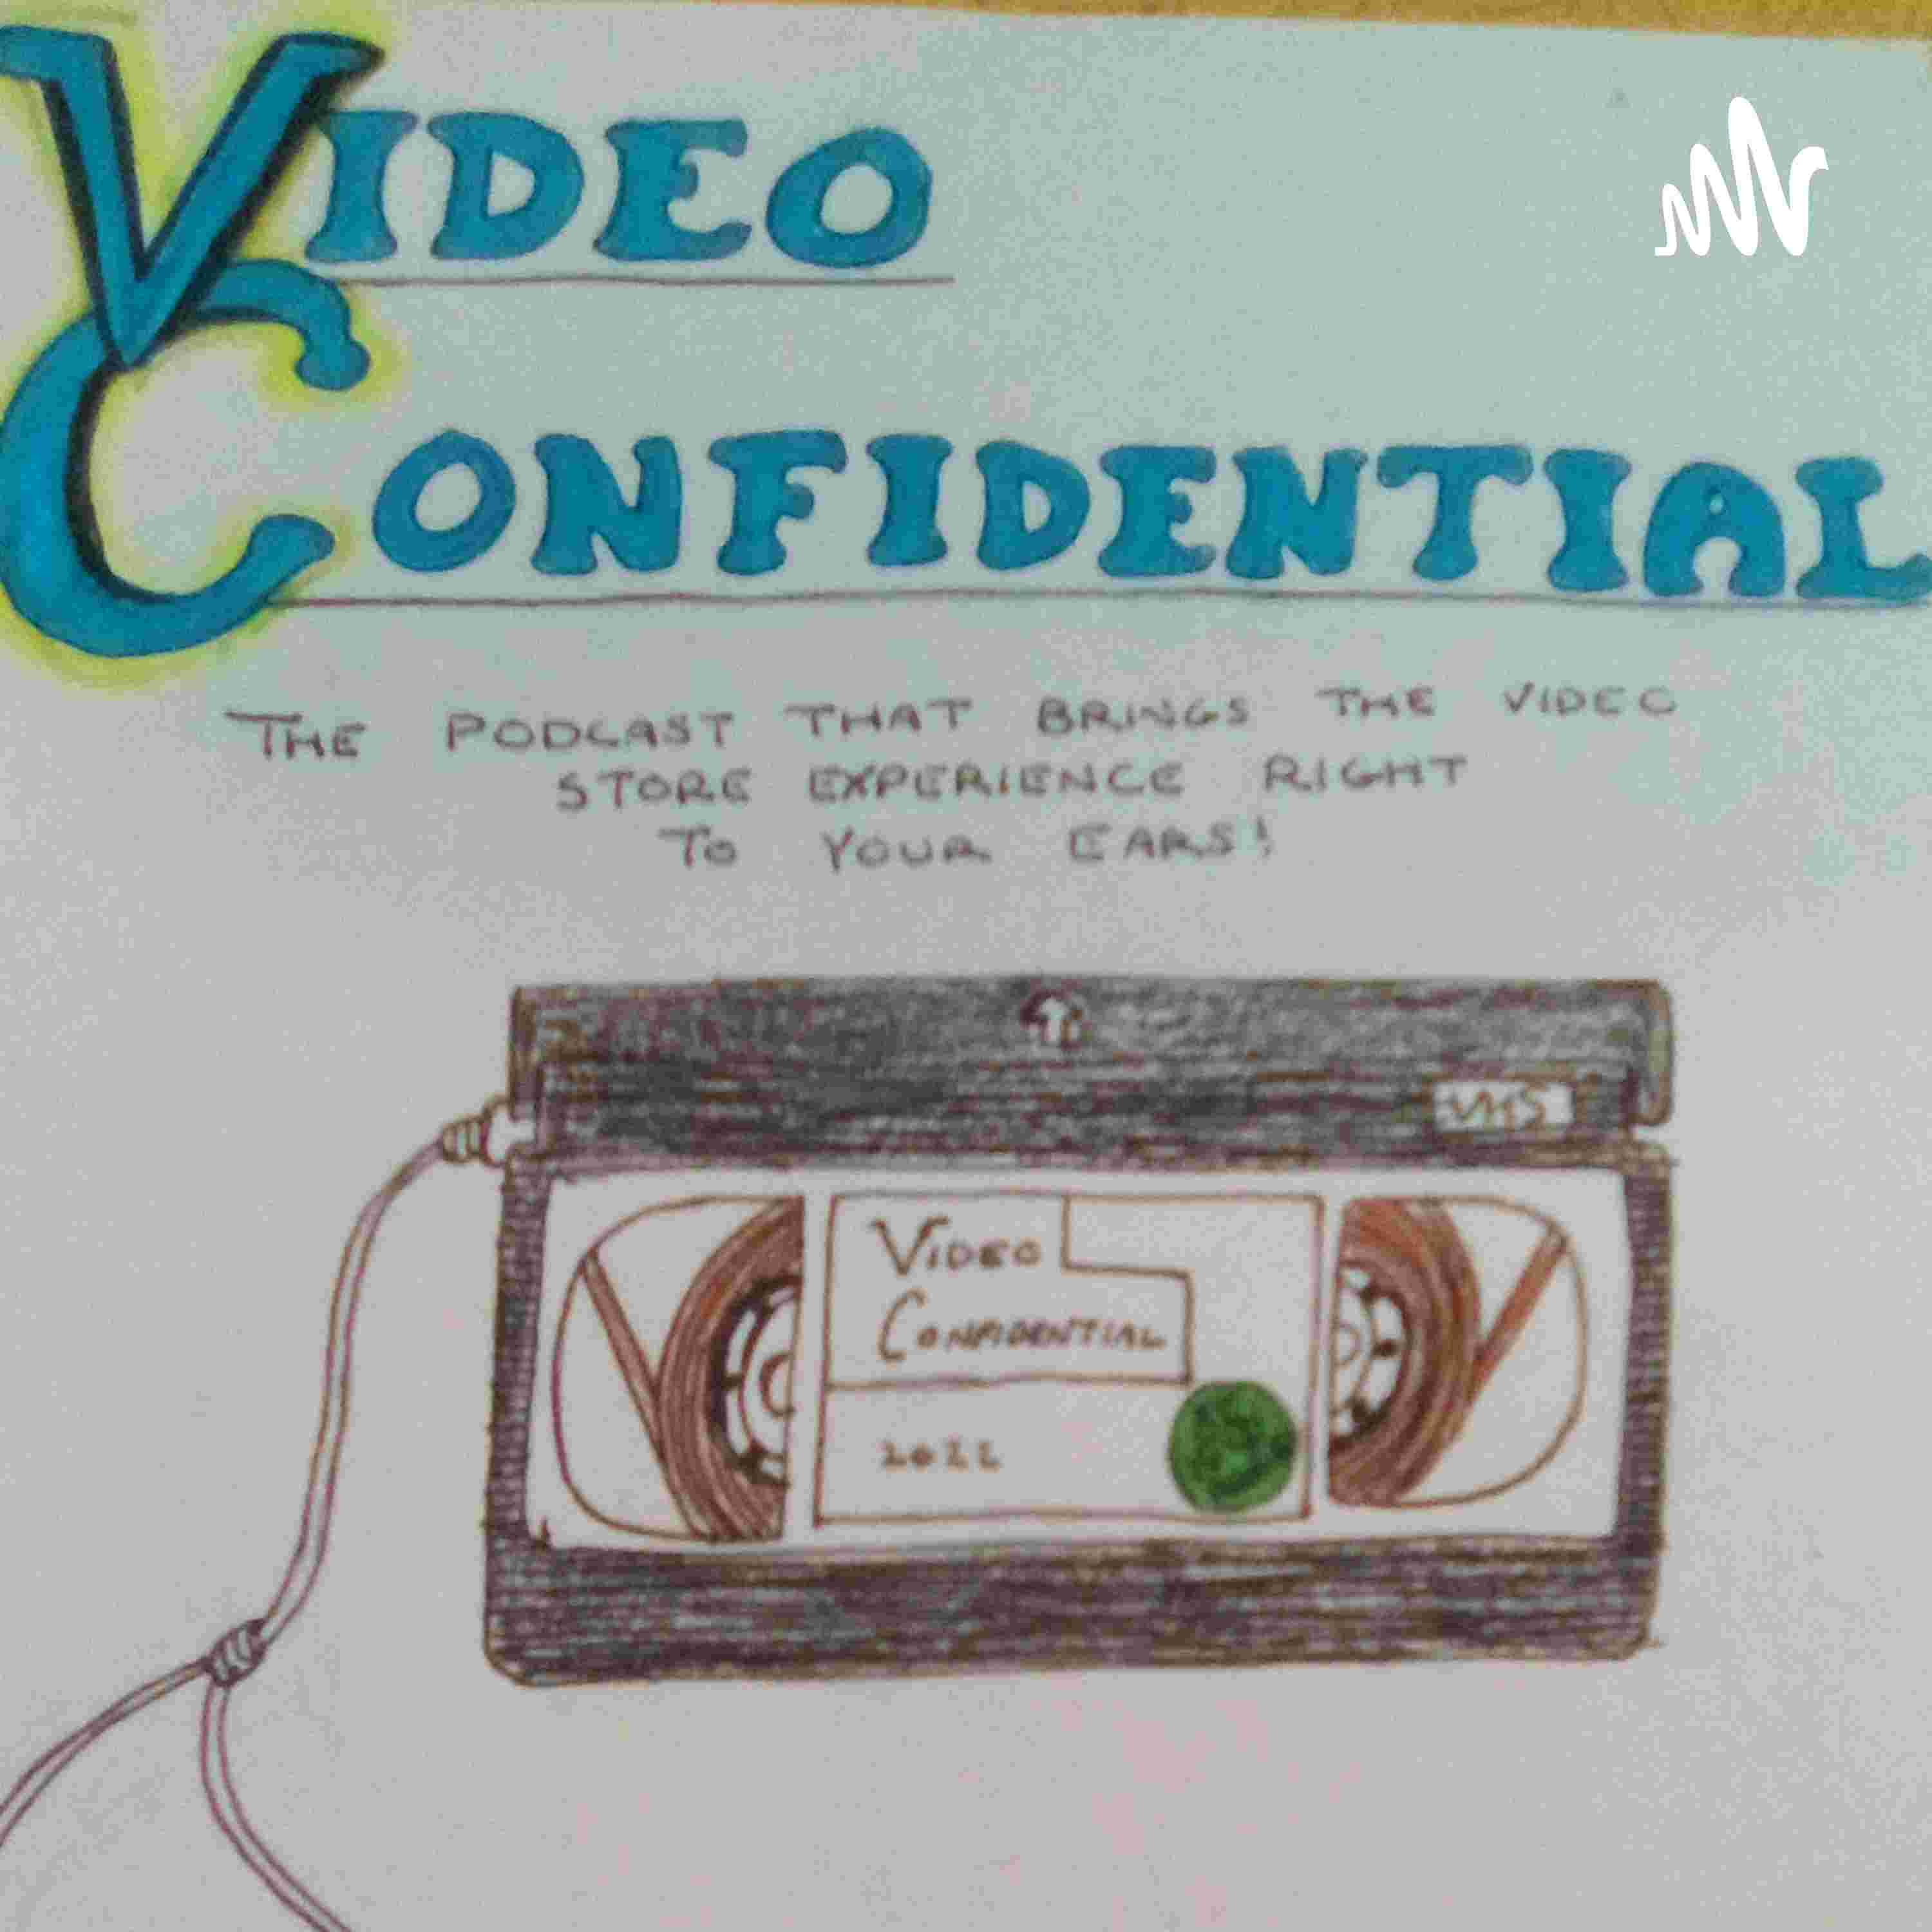 VIDEO
CONFIDENTIAL
THE PODCAST THAT BRINGS THE VIDEO
STORE EXPERIENCE RIGHT
TO YOUR EARS!
VHS
VIDEO
CONFIDENTIAL
2022